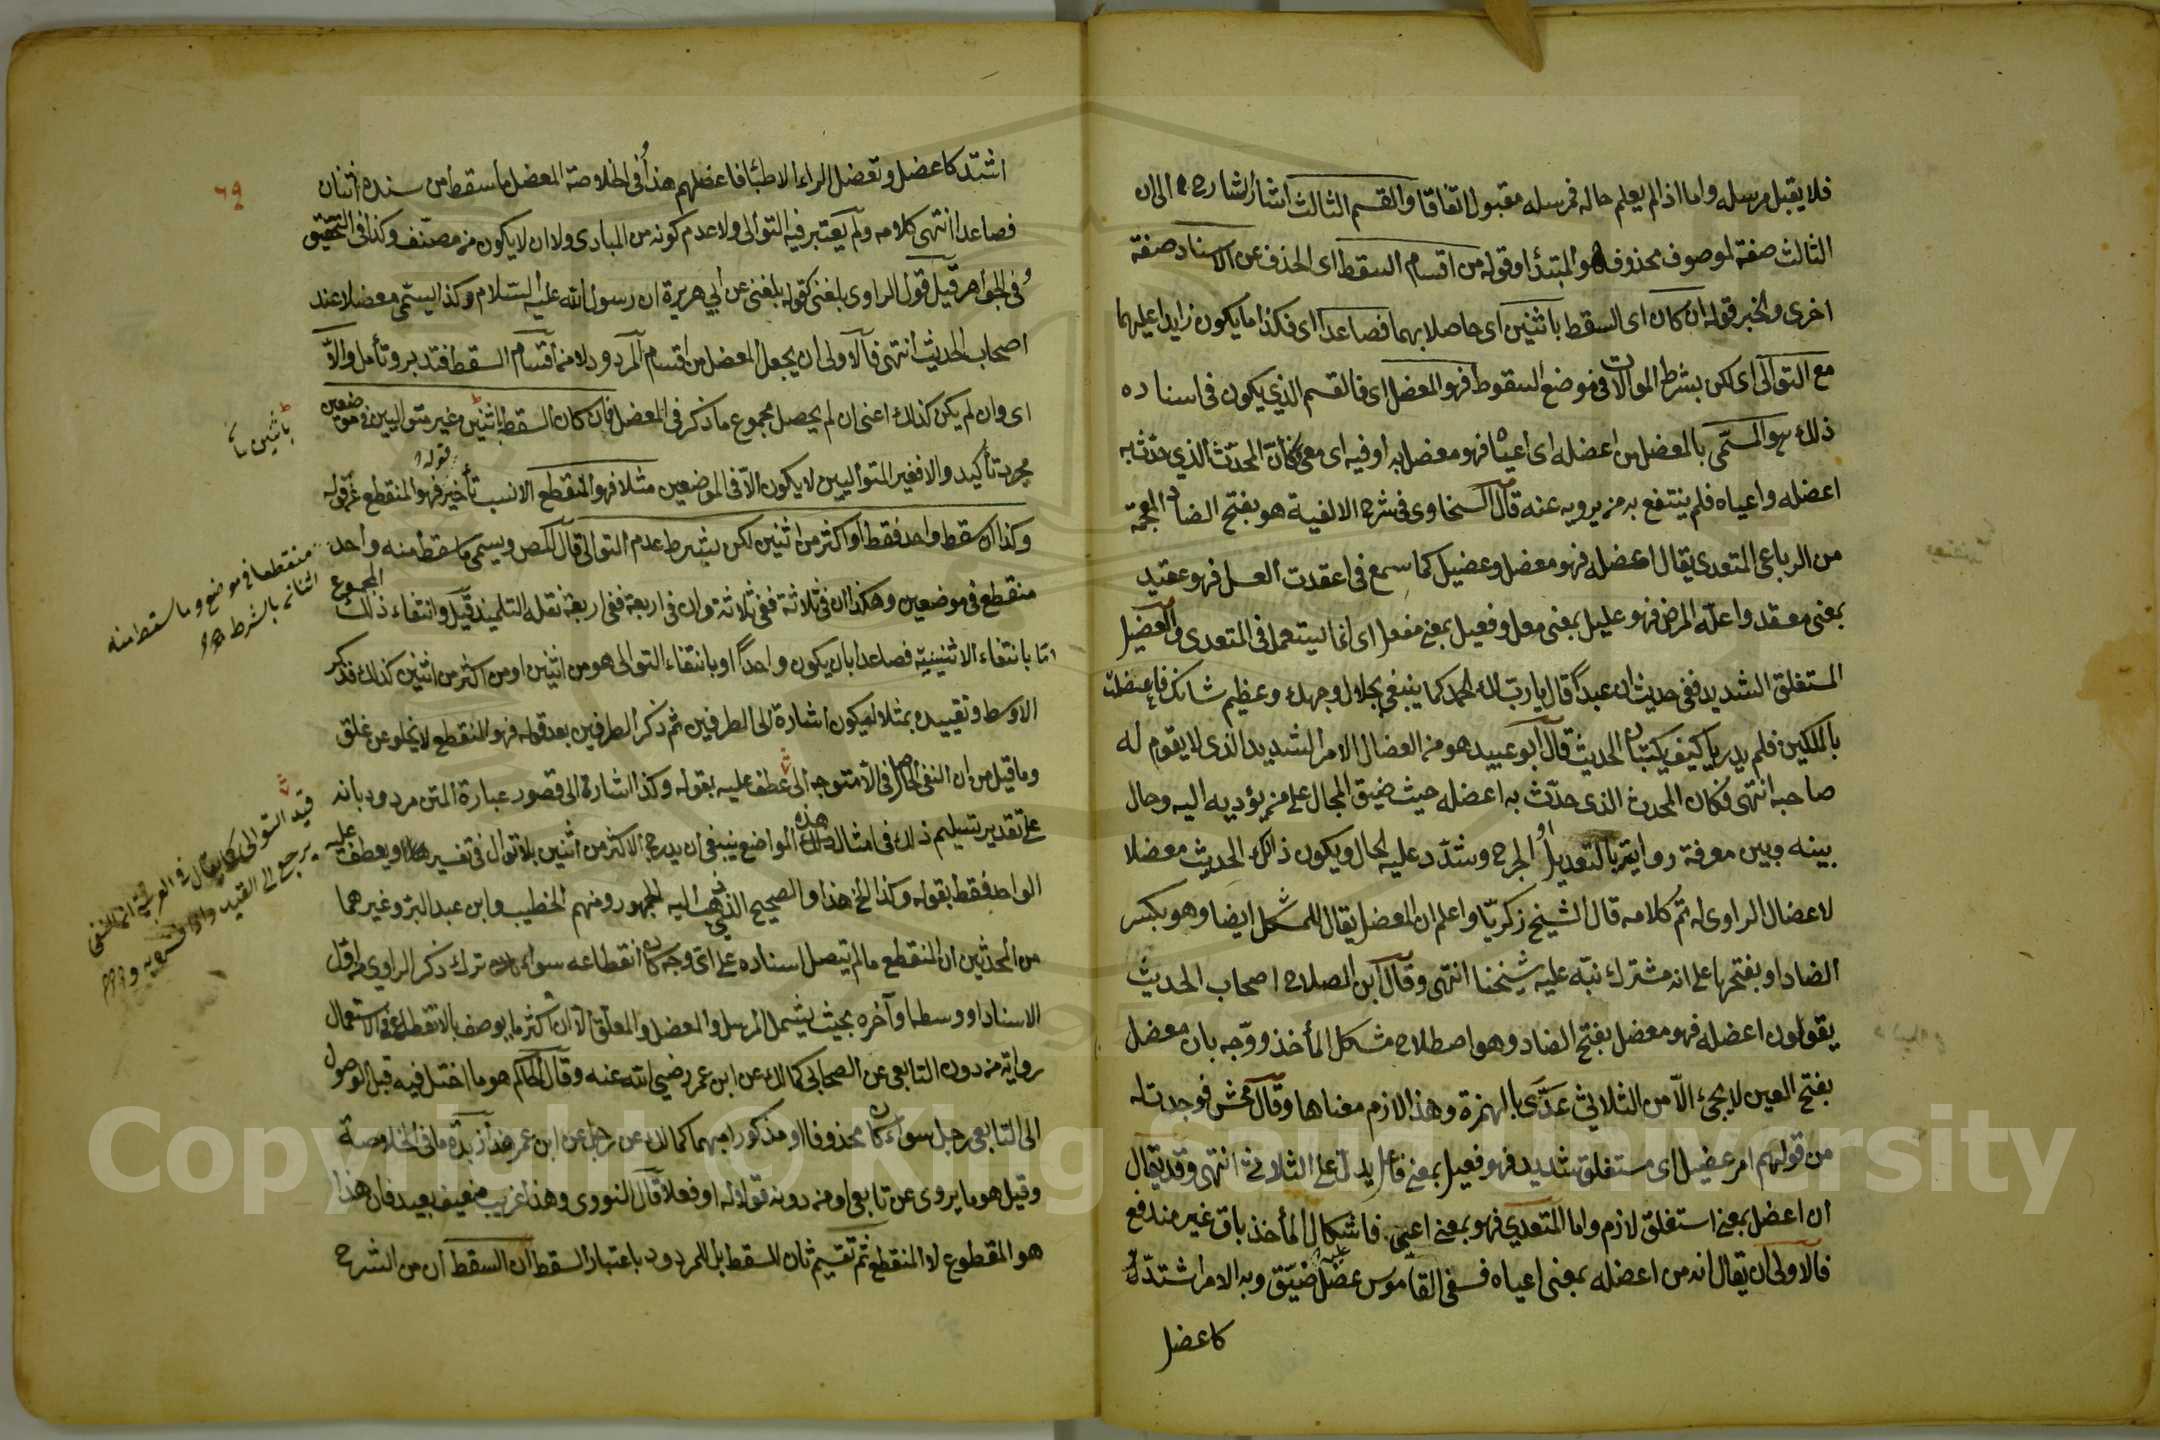 فلا يقبل مرسله واما اذا لم يعلم حاله فمرسله مقبول اتفاقا والقسم الثالث اشار الشارح الى ان
الثالث صفة لموصوف محذوف هو المبتدأ وقوله من اقسام السقط اى الحذف عن الاسناد صفة
اخرى والخبر قوله ان كان اى السقط باثنين اى حاصلا بهما فصاعدا اى فكذا ما يكون زايدا عليهما
مع التوالى اى لكن بشرط الموالات فى موضع السقوط فهو المعضل اى فالقسم الذي يكون فى اسناده
ذلك هو المسمّى بالمعضل من اعضله اى اعياه فهو معضل به او فيه اى معيى فكأنّ المحدّث الذي حدّث به
اعضله واعياه فلم ينتفع به من يرويه عنه قال السخاوى فى شرح الالفية هو بفتح الضاد المعجمة
من الرباعى المتعدى يقال اعضله فهو معضل وعضيل كما سمع فى اعقدت العسل فهو عقيد
بمعنى معقد واعلّه المرض فهو عليل بمعنى معل وفعيل بمعنى مفعل اى انما يستعمل فى المتعدى والعضيل
المستغلق الشديد ففى حديث ان عبدا قال يارب لك الحمد كما ينبغى لجلال وجهك وعظيم شانك فاعضلت
بالملكين فلم يدريا كيف يكتبان الحديث قال ابو عبيد هو من العضال الامر الشديد الذى لا يقوم له
صاحبه انتهى فكان المحدث الذى حدّث به اعضله حيث ضيق المجال على من يؤديه اليه وحال
بينه وبين معرفة روايته بالتعديل او الجرح وشدّد عليه الحال ويكون ذلك الحديث معضلا
لاعضال الراوى له تم كلامه قال الشيخ زكريّا واعلم ان المعضل يقال للمشكل ايضا وهو بكسر
الضاد او بفتحها على انه مشترك نبّه عليه شيخنا انتهى وقال ابن الصلاح اصحاب الحديث
يقولون اعضله فهو معضل بفتح الضاد وهو اصطلاح مشكل المأخذ ووجّه بان معضل
بفتح العين لا يجىء الّا من الثلاثي عدّى بالهمزة وهذا لازم معناها وقال محش فوجدت له
من قولهم امر عضيل اى مستغلق شديد فهو فعيل بمعنى فاعل يدلّ على الثلاثى انتهى وقد يقال
ان اعضل بمعنى استغلق لازم واما المتعدى فهو بمعنى اعيى فاشكال المأخذ باق غير مندفع
فالاولى ان يقال انه من اعضله بمعنى اعياه ففى القاموس عضّل عليه ضيّق وبه الامر اشتدّ
كاعضل
٦٩
اشتدّ كاعضل وتعضل الداء الاطبّا فاعضلهم هذا وفى الخلاصة المعضل ما سقط من سنده اثنان
فصاعدا انتهى كلامه ولم يعتبر فيه التوالى ولا عدم كونه من المبادى ولا ان لا يكون من مصنّف وكذا فى التحقيق
وفى الجواهر قيل قول الراوى بلغنى كقوله بلغنى عن ابي هريرة ان رسول الله عليه السلام وكذا يسمّى معضلا عند
اصحاب الحديث انتهى فالاولى ان يجعل المعضل من اقسام المردود لا من اقسام السقط فتدبر وتأمل والّا
اى وان لم يكن كذلك اعنى ان لم يحصل مجموع ما ذكر فى المعضل فان كان السقط باثنين وغير متواليين فى موضعين
باثنين
مجرد تأكيد والا فغير المتواليين لا يكون الّا فى الموضعين مثلا فهو المنقطع الانسب تأخير قوله فهو المنقطع عن قوله
وكذا ان سقط واحد فقط او اكثر من اثنين لكن بشرط عدم التوالى قال المص ويسمى ما سقط منه واحد
منقطعا فى موضع وما سقط منه
اثنان بالشرط
منقطع فى موضعين وهكذا ان فى ثلاثة ففى ثلاثة وان فى اربعة ففى اربعة نقله التلميذ قيل وانتفاء ذلك المجموع
امّا بانتفاء الاثنينية فصاعدا بان يكون واحداً او بانتفاء التوالى هو من اثنين او من اكثر من اثنين كذلك فذكر
الاوسط وتقييده بمثلا ليكون اشارة الى الطرفين ثم ذكر الطرفين بعد قوله فهو المنقطع لا يخلو عن غلق
وما قيل من ان النفى الحاصل فى الّا متوجه الى عطف عليه بقوله وكذا اشارة الى قصور عبارة المتن مردود بانه
قيد التوالى كما يقال فى العربية ان النفى
يرجع الى القيد
على تقدير تسليم ذلك فى امثال هذه المواضع ينبغى ان يدرج الاكثر من اثنين بلا توال فى تفسير ويعطف عليه
الواحد فقط بقوله وكذا الخ هذا والصحيح الذى ذهب اليه الجمهور ومنهم الخطيب وابن عبد البرّ وغيرهما
من المحدثين ان المنقطع ما لم يتصل اسناده على اى وجه كان انقطاعه سواء كان ترك ذكر الراوى من اول
الاسناد او وسطه او آخره بحيث يشمل المرسل والمعضل والمعلق الّا ان اكثر ما يوصف بالانقطاع فى الاستعمال
رواية من دون التابعى عن الصحابى كمالك عن ابن عمر رضي الله عنه وقال الحاكم هو ما اختل فيه قبل الوصول
الى التابعى رجل سواء كان محذوفا او مذكورا مبهما كمالك عن رجل عن ابن عمر هذا زبدة ما فى الخلاصة
وقيل هو ما يروى عن تابعى او من دونه قولا له او فعلا قال النووى وهذا غريب ضعيف بعيد فان هذا
هو المقطوع لا المنقطع ثم تقسيم ثان للسقط بل للمردود باعتبار السقط ان السقط ان من الشرح
Copyright © King Saud University